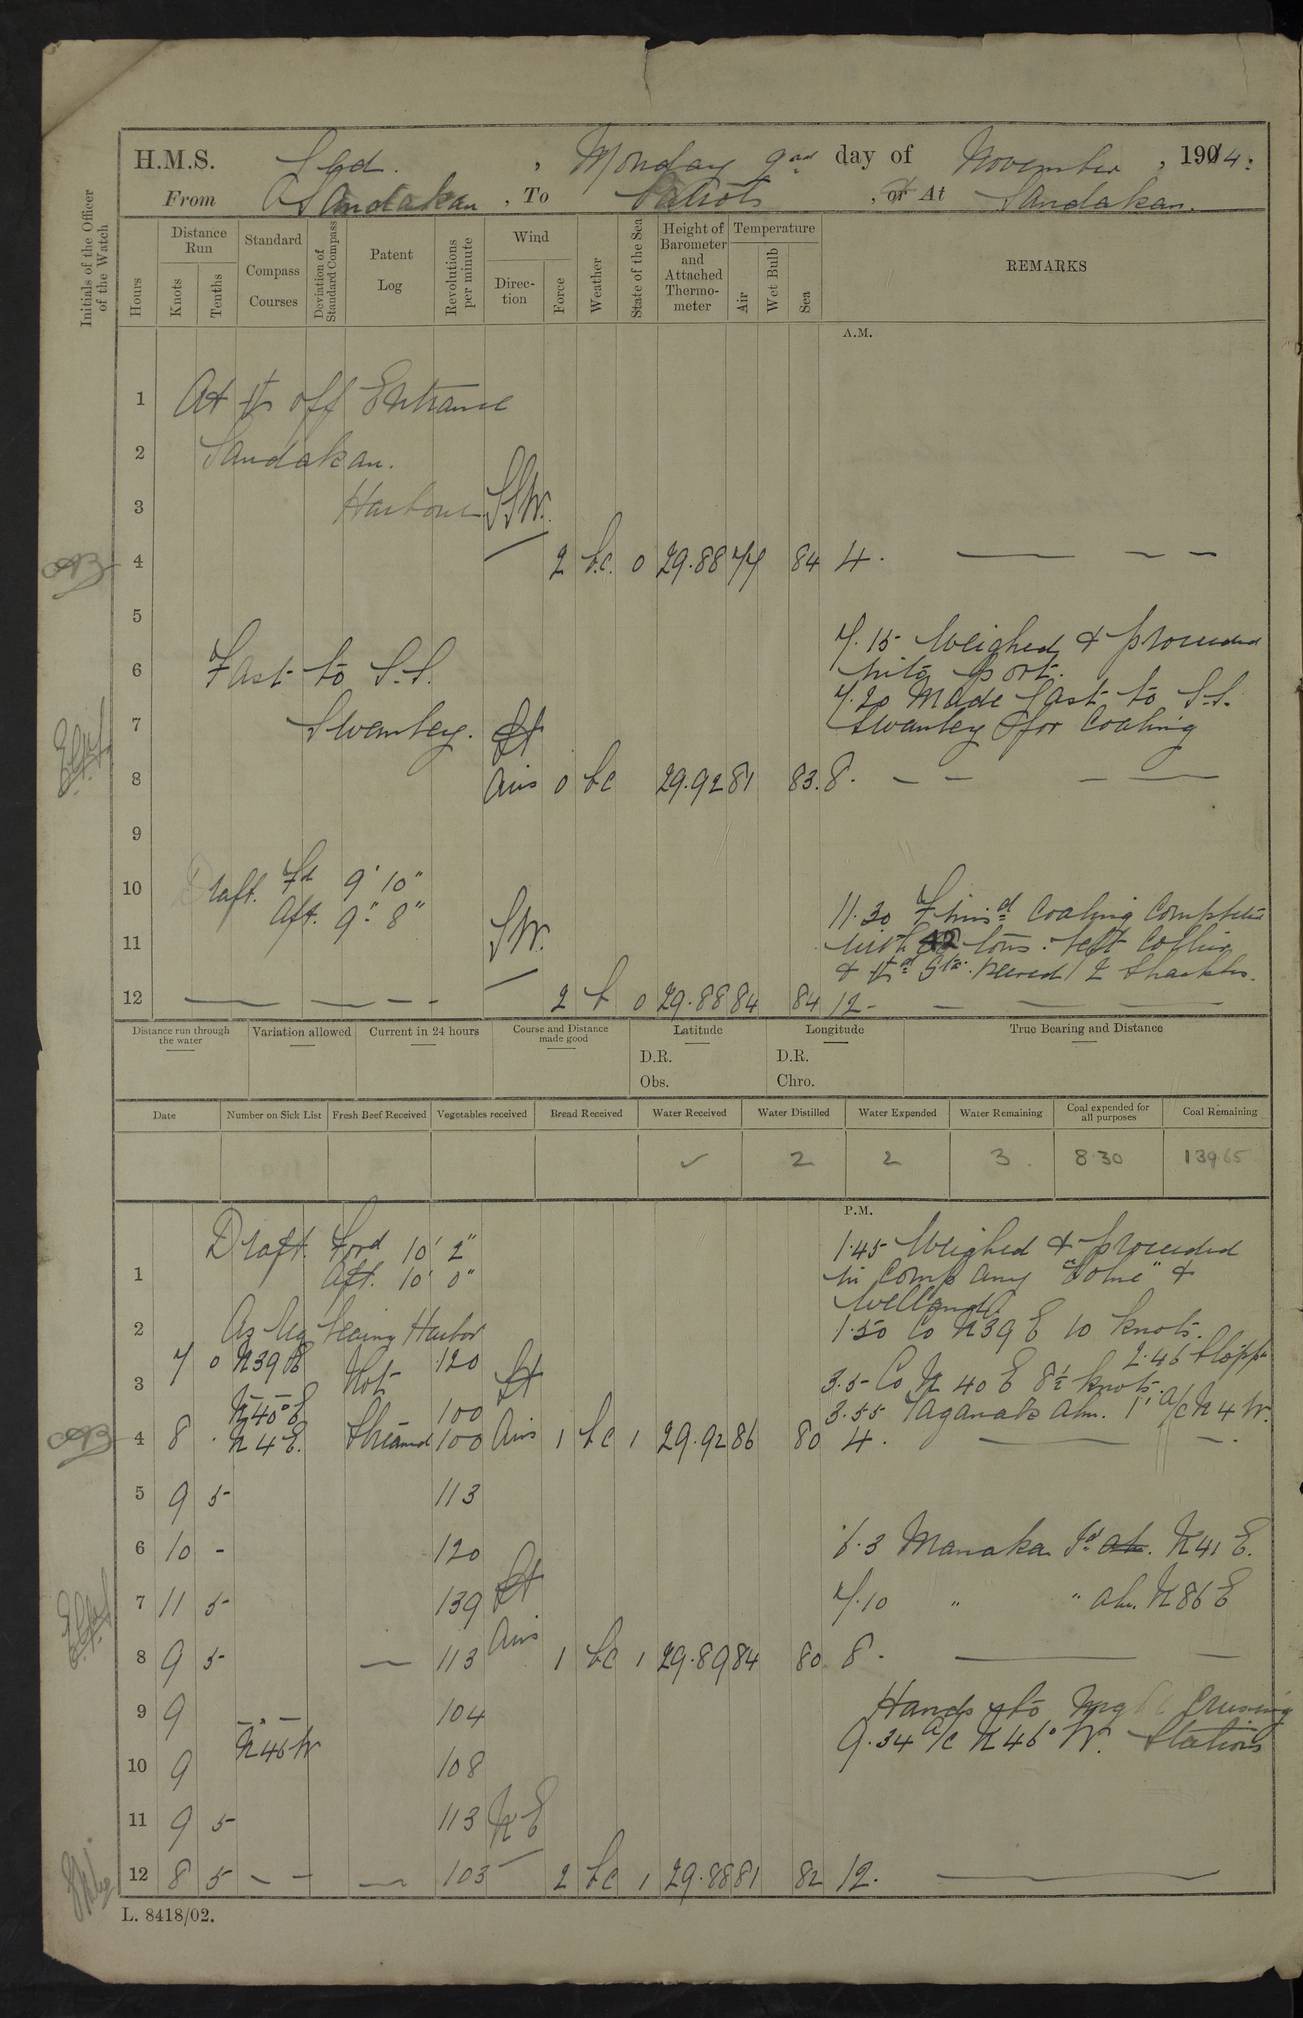 H.M.S. Jed. , Monday 2nd day of November , 1914.
From Sandakan , To Patrol , or At Sandakan.
Initials of the Officer of the Watch
Hours
Distance Run
Knots
Tenths
Standard Compass Courses
Deviation of Standard Compass
Patent Log
Revolutions per minute
Wind
Direction
Force
Weather
State of the Sea
Height of Barometer and Attached Thermometer
Temperature
Air
Wet Bulb
Sea
REMARKS
A.M.
1 At off Entrance
2 Sandakan.
3 Harbour SSW.
4 2 b.c. 0 29.88 77 84 4.
5
7.15 Weighed & proceeded
6 Fast to S.S. into port.
7.20 Made fast to S.S.
7 Swanley. Lt Swanley for Coaling
8 Airs 0 bc 29.92 81 83. 8.
9
10 Draft. Fd 9' 10"
Aft. 9" 8" 11.30 Finisd Coaling Completed
11 SW. with 42 tons. left Collier
& Sta. veered 2 shackles.
12 2 b 0 29.88 84 84 12
Distance run through the water
Variation allowed
Current in 24 hours
Course and Distance made good
Latitude
D.R.
Obs.
Longitude
D.R.
Chro.
True Bearing and Distance
Date
Number on Sick List
Fresh Beef Received
Vegetables received
Bread Received
Water Received
Water Distilled
Water Expended
Water Remaining
Coal expended for all purposes
Coal Remaining
✓ 2 2 3 8.30 139.65
P.M.
Draft. Ford 10' 2" 1.45 Weighed & proceeded
1 Aft. 10' 0" in Company "Colne" &
Welland
2 As req leaving Harbor 1.50 Co N39E 10 knots.
7 0 N39E Not 120 2.46 Stopp
3 Lt 3.5 Co N 40 E 8½ knots.
N40°E 100 3.55 Taganak abm. 1' a/c N4W.
4 8 N4E. Streamed 100 Airs 1 bc 1 29.92 86 80 4.
5 9 5 113
6 10 - 120 6.3 Manaka Id. N41E.
7 11 5 139 Lt 7.10 " " abm. N86E
Airs
8 9 5 113 1 bc 1 29.89 84 80 8.
9 9 104 Hands to Cruising
N46W 9.34 a/c N46°W. Stations
10 9 108
11 9 5 113 NE
12 8 5 103 2 bc 1 29.88 81 82 12.
L. 8418/02.